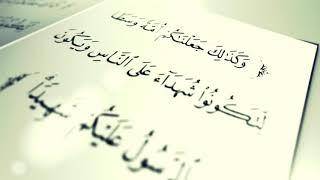 ﴿ وَكَذَٰلِكَ جَعَلْنَاكُمْ أُمَّةً وَسَطًا
لِتَكُونُوا شُهَدَاءَ عَلَى النَّاسِ وَيَكُونَ
الرَّسُولُ عَلَيْكُمْ شَهِيدًا